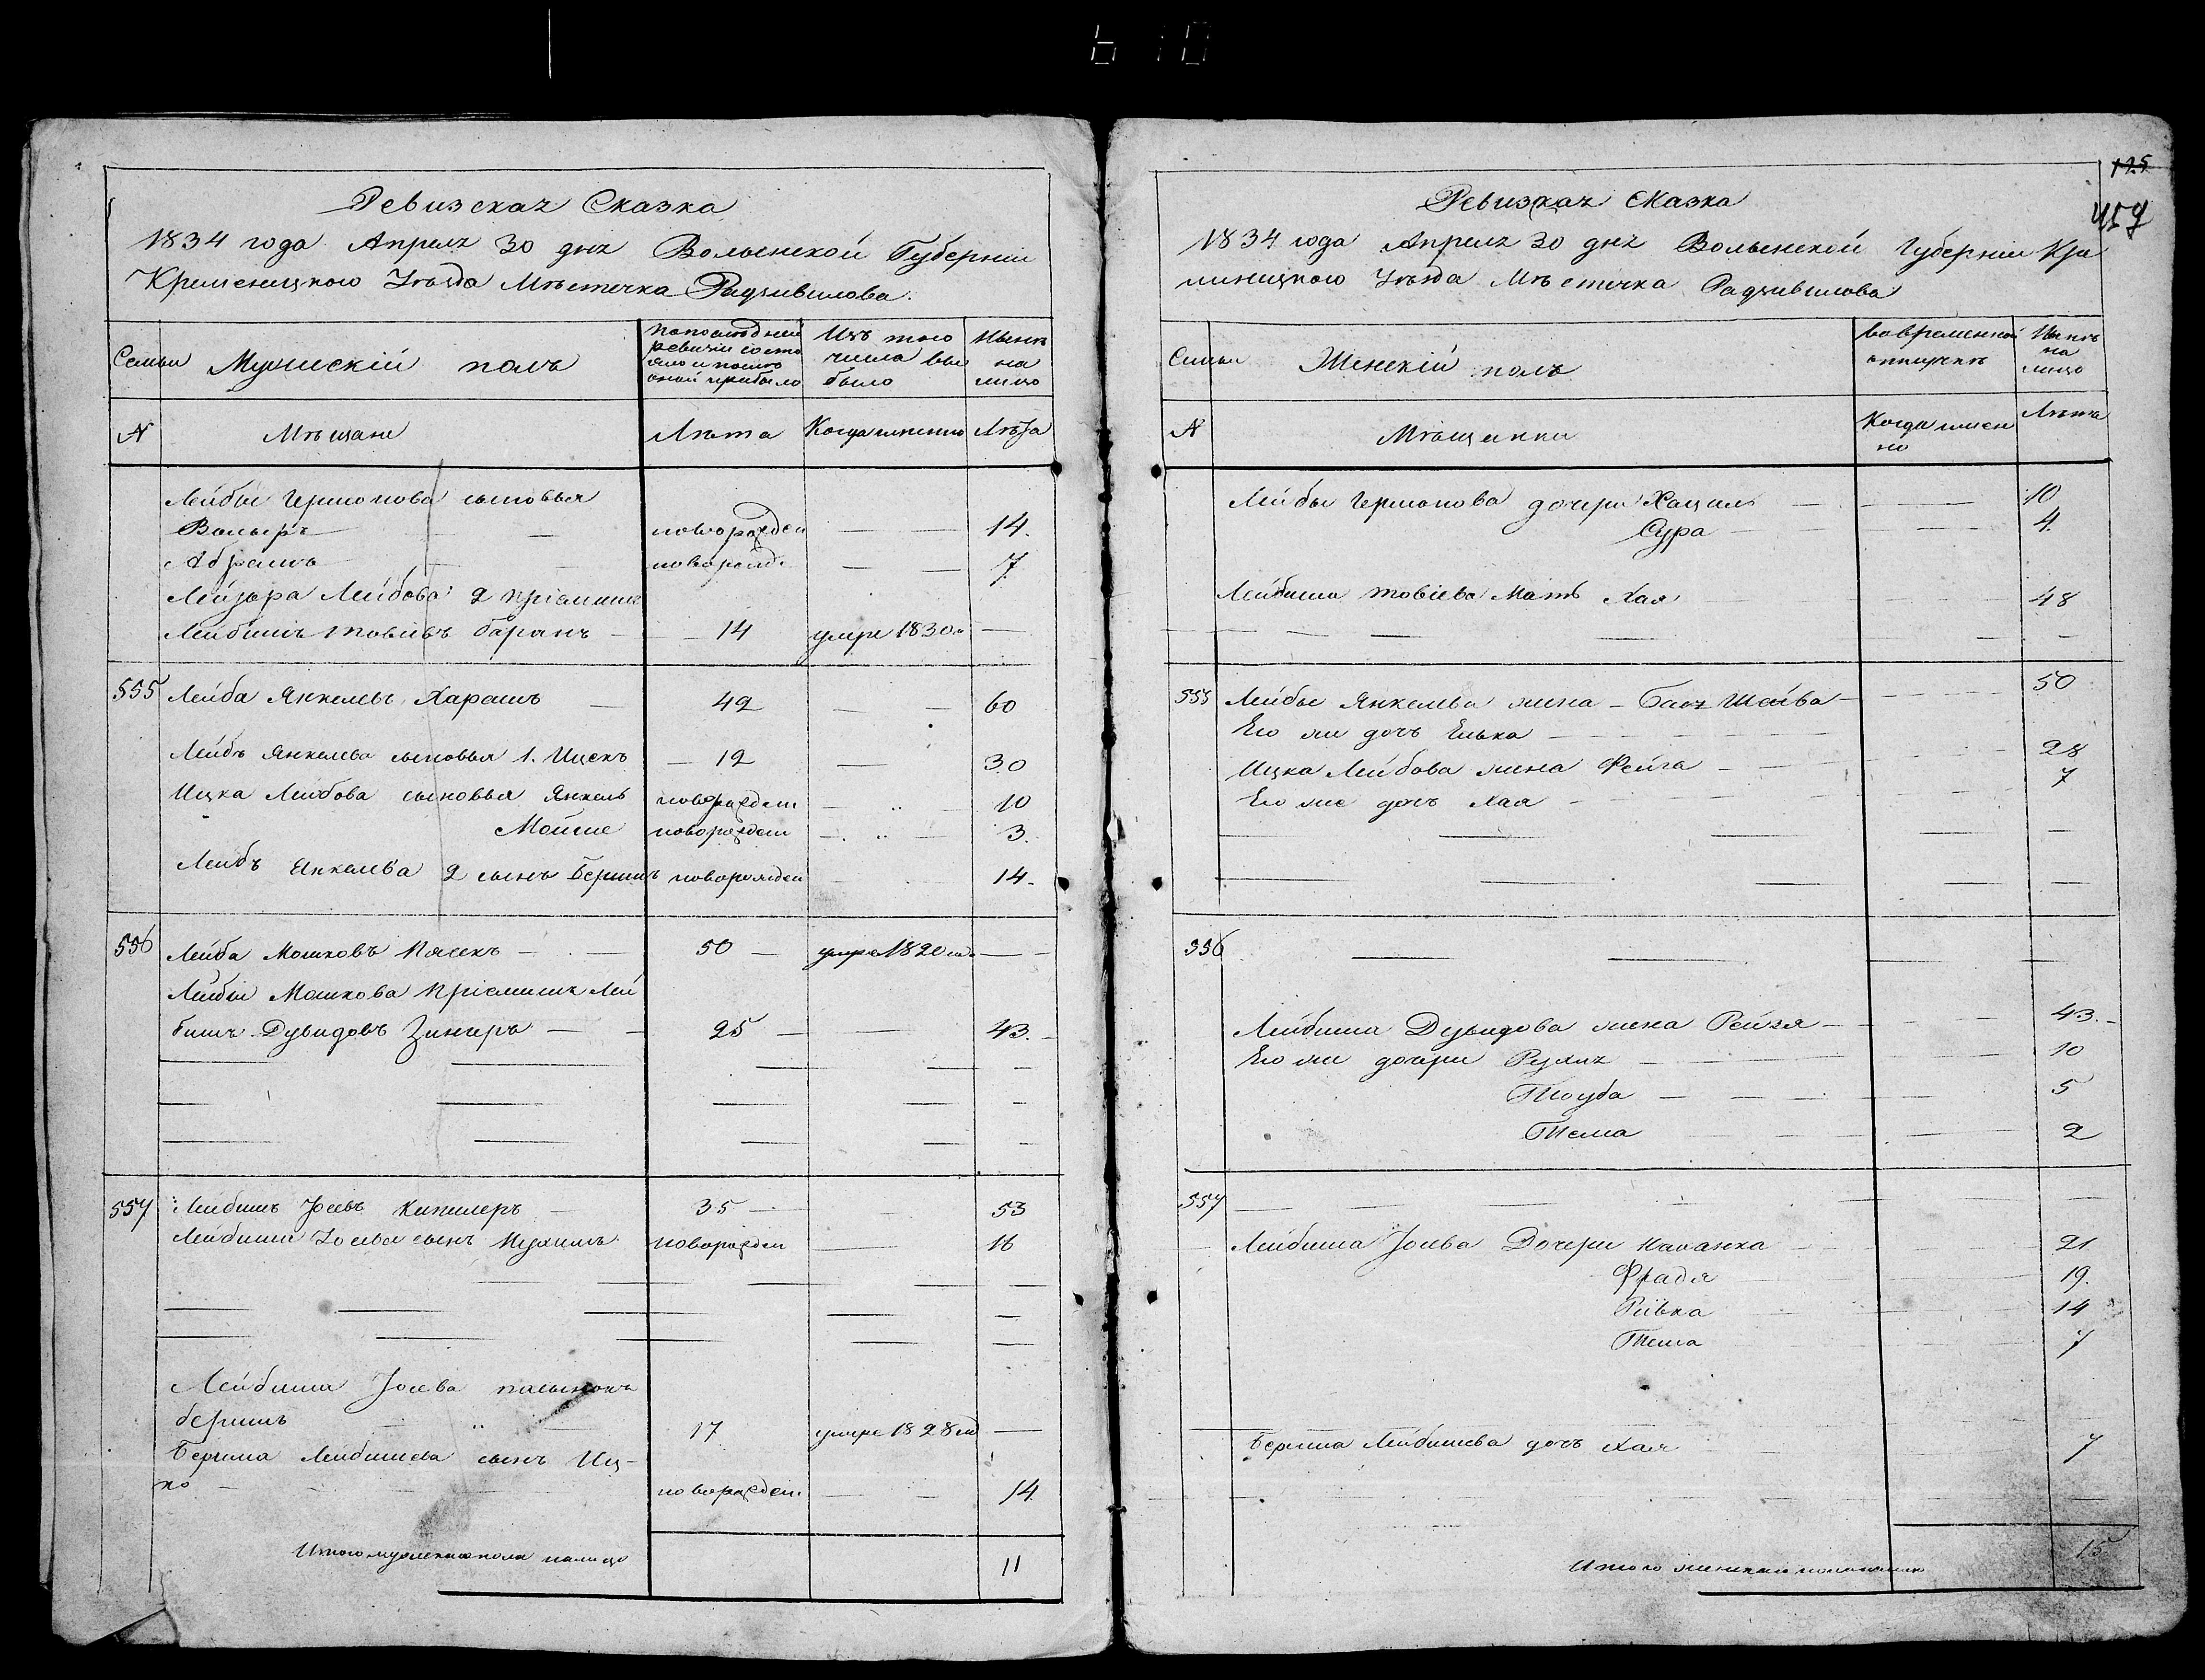 610
Ревизская Сказка
1834 года Апреля 30 дня Волынской Губернии
Кременецкого Уѣзда Мѣстечка Радзивилова.
Семьи Мужескій полъ
по последней ревизіи состояло и после оной прибыло
Изъ того числа выбыло
Нынѣ на лицо
№ Мѣщане Лѣта Когда именно Лѣта
Лейбы Гершонова сыновья
новорожден — — 14.
Абрамъ новорожд — — 7
Лейзора Лейбова 2 пріемыш
Лейбишъ Товіевъ баранъ — 14 умре 1830 —
555 Лейба Янкелевъ Харашъ — 49 — — 60
Лейбъ Янкелева сыновья 1. Ицекъ — 12 — 30
Ицка Лейбова сыновья Янкель новорожден — „ — 10
Мойше новорожден — „ — 3.
Лейбъ Янкелева 2 сынъ Бершъ новорожден — 14.
556 Лейба Мошковъ Пясекъ — — 50 — умре 1820 — —
Лейбы Мошкова Пріемышъ Лей
бишъ Дувидовъ Зингеръ — — 25 — — 43. —
557 Лейбишъ Іосевъ — 35 — — 53
Лейбиша Іосева сынъ новорожден — 16
Лейбиша Іосева пасынокъ
бершъ — „ — 17 умре 1828 —
Берша Лейбишева сынъ Иц-
ко — новорожден — — 14.
Итого мужеска пола налицо 11
125
457
Ревизская Сказка
1834 года Апреля 30 дня Волынской Губернии Кре
минецкого Уѣзда Мѣстечка Радзивилова
Семьи Женскій полъ
во временной отлучкѣ
Нынѣ на лицо
№ Мѣщанки Когда именно Лѣта
Лейбы Гершонова дочери — — 10
Сура — — 4.
Лейбиша Товіева Мать Хая 48
555 Лейбы Янкелева жена — Бася Шейва — — 50
Его же дочь Елька —
Ицка Лейбова жена Фейга — 28
Его же дочь Хая — 7
556
Лейбиша Дувидова жена Рейзя — 43. -
Его же дочери Рухля — 10
Тоуба — 5
Тема 2
557
Лейбиша Іосева Дочери 21
Фрадя 19.
Ривка 14
Тема 7
Берша Лейбишева дочь Хая 7
Итого женска пола налицо 15